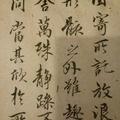 因寄所託放浪
形骸之外雖趣
舍萬殊靜躁不
同當其欣於所